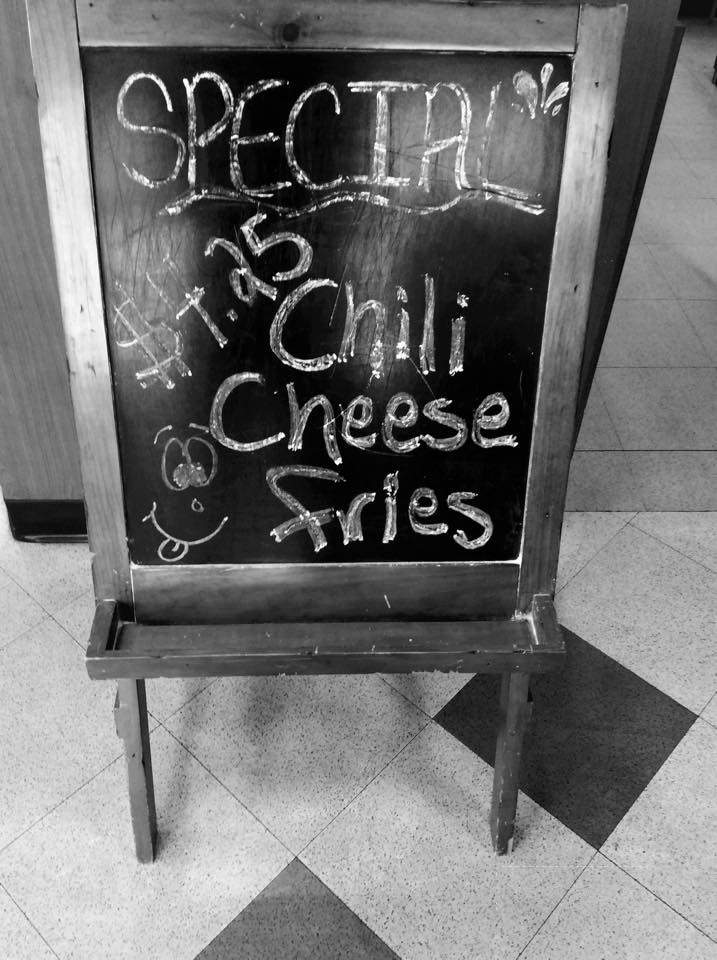 SPECIAL
$4.25
Chili
Cheese
fries